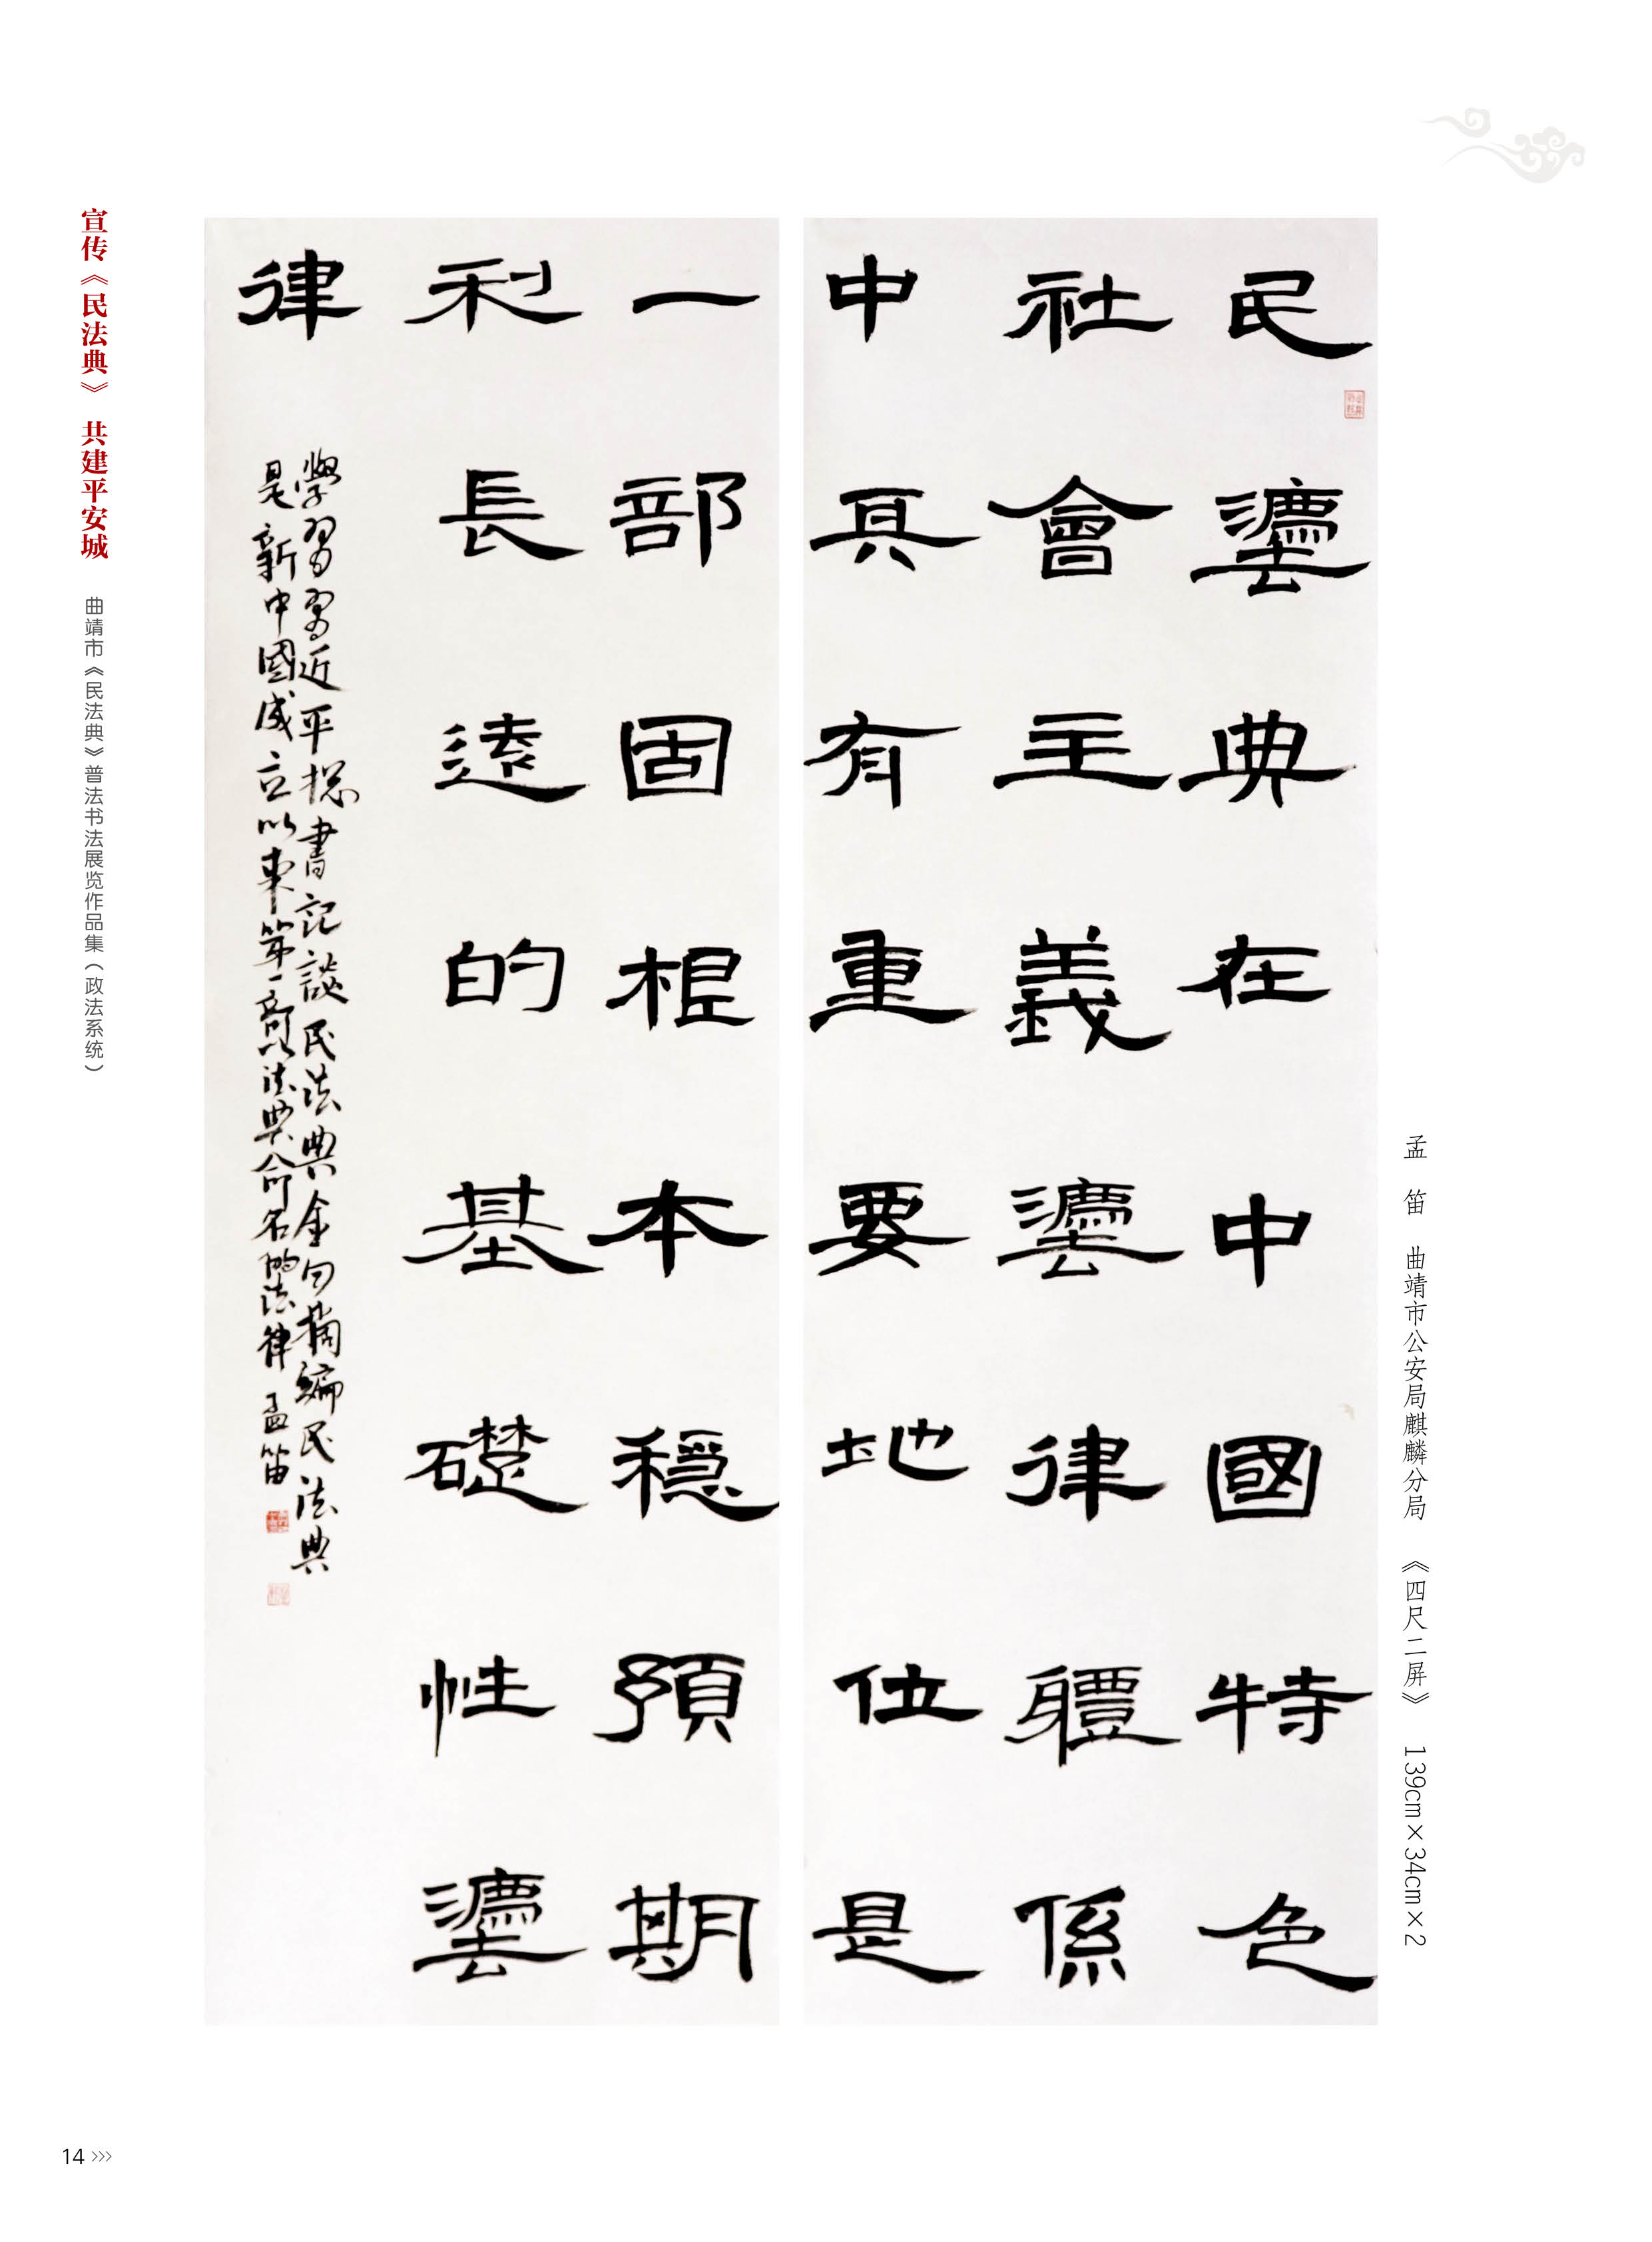 宣传《民法典》 共建平安城 曲靖市《民法典》普法书法展览作品集（政法系统）
民灋典在中國特色
社會主義灋律軆係
中具有重要地位是
一部固根本穩預期
利長遠的基礎性灋
律
學習習近平總書記談民法典金句摘編民法典
是新中國成立以來第一部以法典命名的法律 孟笛
孟 笛 曲靖市公安局麒麟分局 《四尺二屏》 139cm×34cm×2
14 >>>